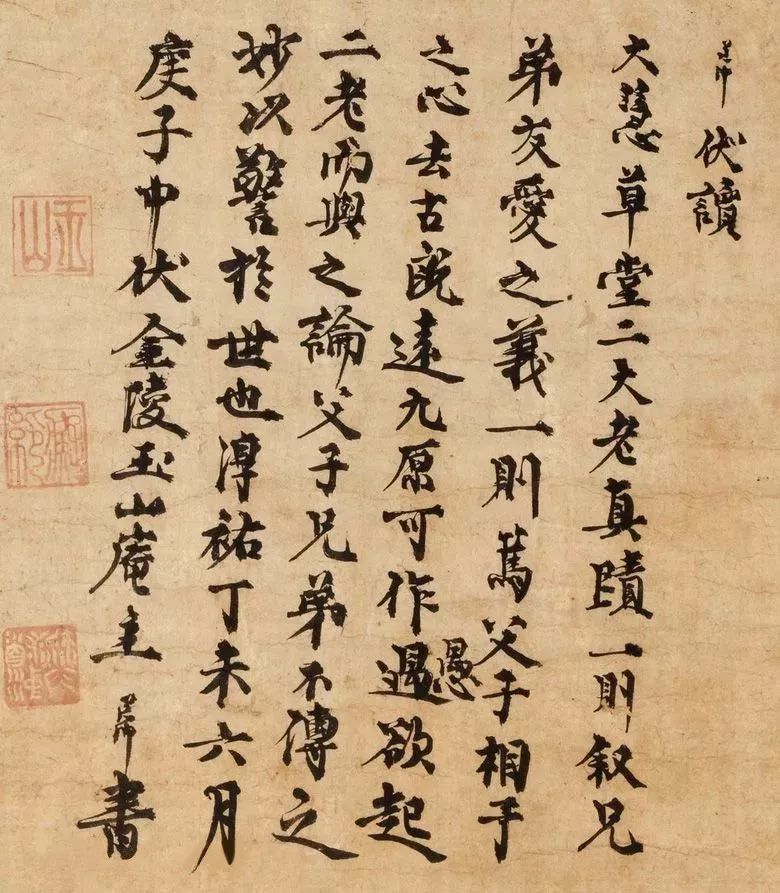 伏讀
大慧草堂二大老真蹟一則叙兄
弟友愛之義一則篤父子相予
之心去古既遠九原可作遇愚欲起
二老而與之論父子兄弟不傳之
妙以警於世也淳祐丁未六月
庚子中伏金陵玉山庵主書
玉山